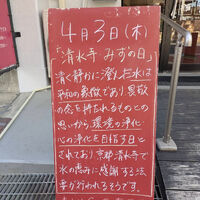 4月3日(木)
「清水寺 みずの日」
清く静かに澄んだ水は
平和の象徴であり畏敬
の念を持たれるものとの
思いから環境の浄化・
心の浄化を目指す日と
されており京都清水寺で
水の恵みに感謝する法
要が行われるそうです。